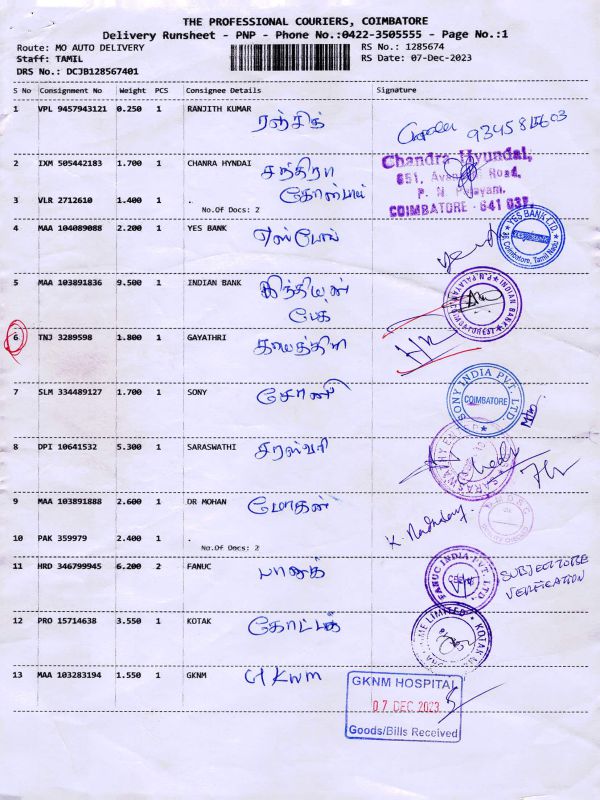 THE PROFESSIONAL COURIERS, COIMBATORE
Delivery Runsheet - PNP - Phone No.:0422-3505555 - Page No.:1
Route: MO AUTO DELIVERY
RS No.: 1285674
Staff: TAMIL
RS Date: 07-Dec-2023
DRS No.: DCJB128567401
S No Consignment No Weight PCS Consignee Details Signature
1 VPL 9457943121 0.250 1 RANJITH KUMAR
ரஞ்சித்
2 IXM 505442183 1.700 1 CHANRA HYNDAI
சந்திரா
Chandra Hyundai,
651, Road,
P. N. Palayam,
COIMBATORE - 641 037.
3 VLR 2712610 1.400 1 .
No.Of Docs: 2
4 MAA 104089088 2.200 1 YES BANK
YES BANK LTD
Coimbatore, Tamil Nadu
5 MAA 103891836 9.500 1 INDIAN BANK
இந்தியன்
பேங்
INDIAN BANK
6 TNJ 3289598 1.800 1 GAYATHRI
காயத்திரி
7 SLM 334489127 1.700 1 SONY
சோனி
SONY INDIA PVT. LTD
COIMBATORE
8 DPI 10641532 5.300 1 SARASWATHI
சரஸ்வதி
9 MAA 103891888 2.600 1 DR MOHAN
மோகன்
10 PAK 359979 2.400 1 .
No.Of Docs: 2
11 HRD 346799945 6.200 2 FANUC
பானுக்
FANUC INDIA PVT. LTD.
SUBJECT TO RE
VERIFICATION
12 PRO 15714638 3.550 1 KOTAK
கோட்டக்
13 MAA 103283194 1.550 1 GKNM
GKNM
GKNM HOSPITAL
07 DEC 2023
Goods/Bills Received